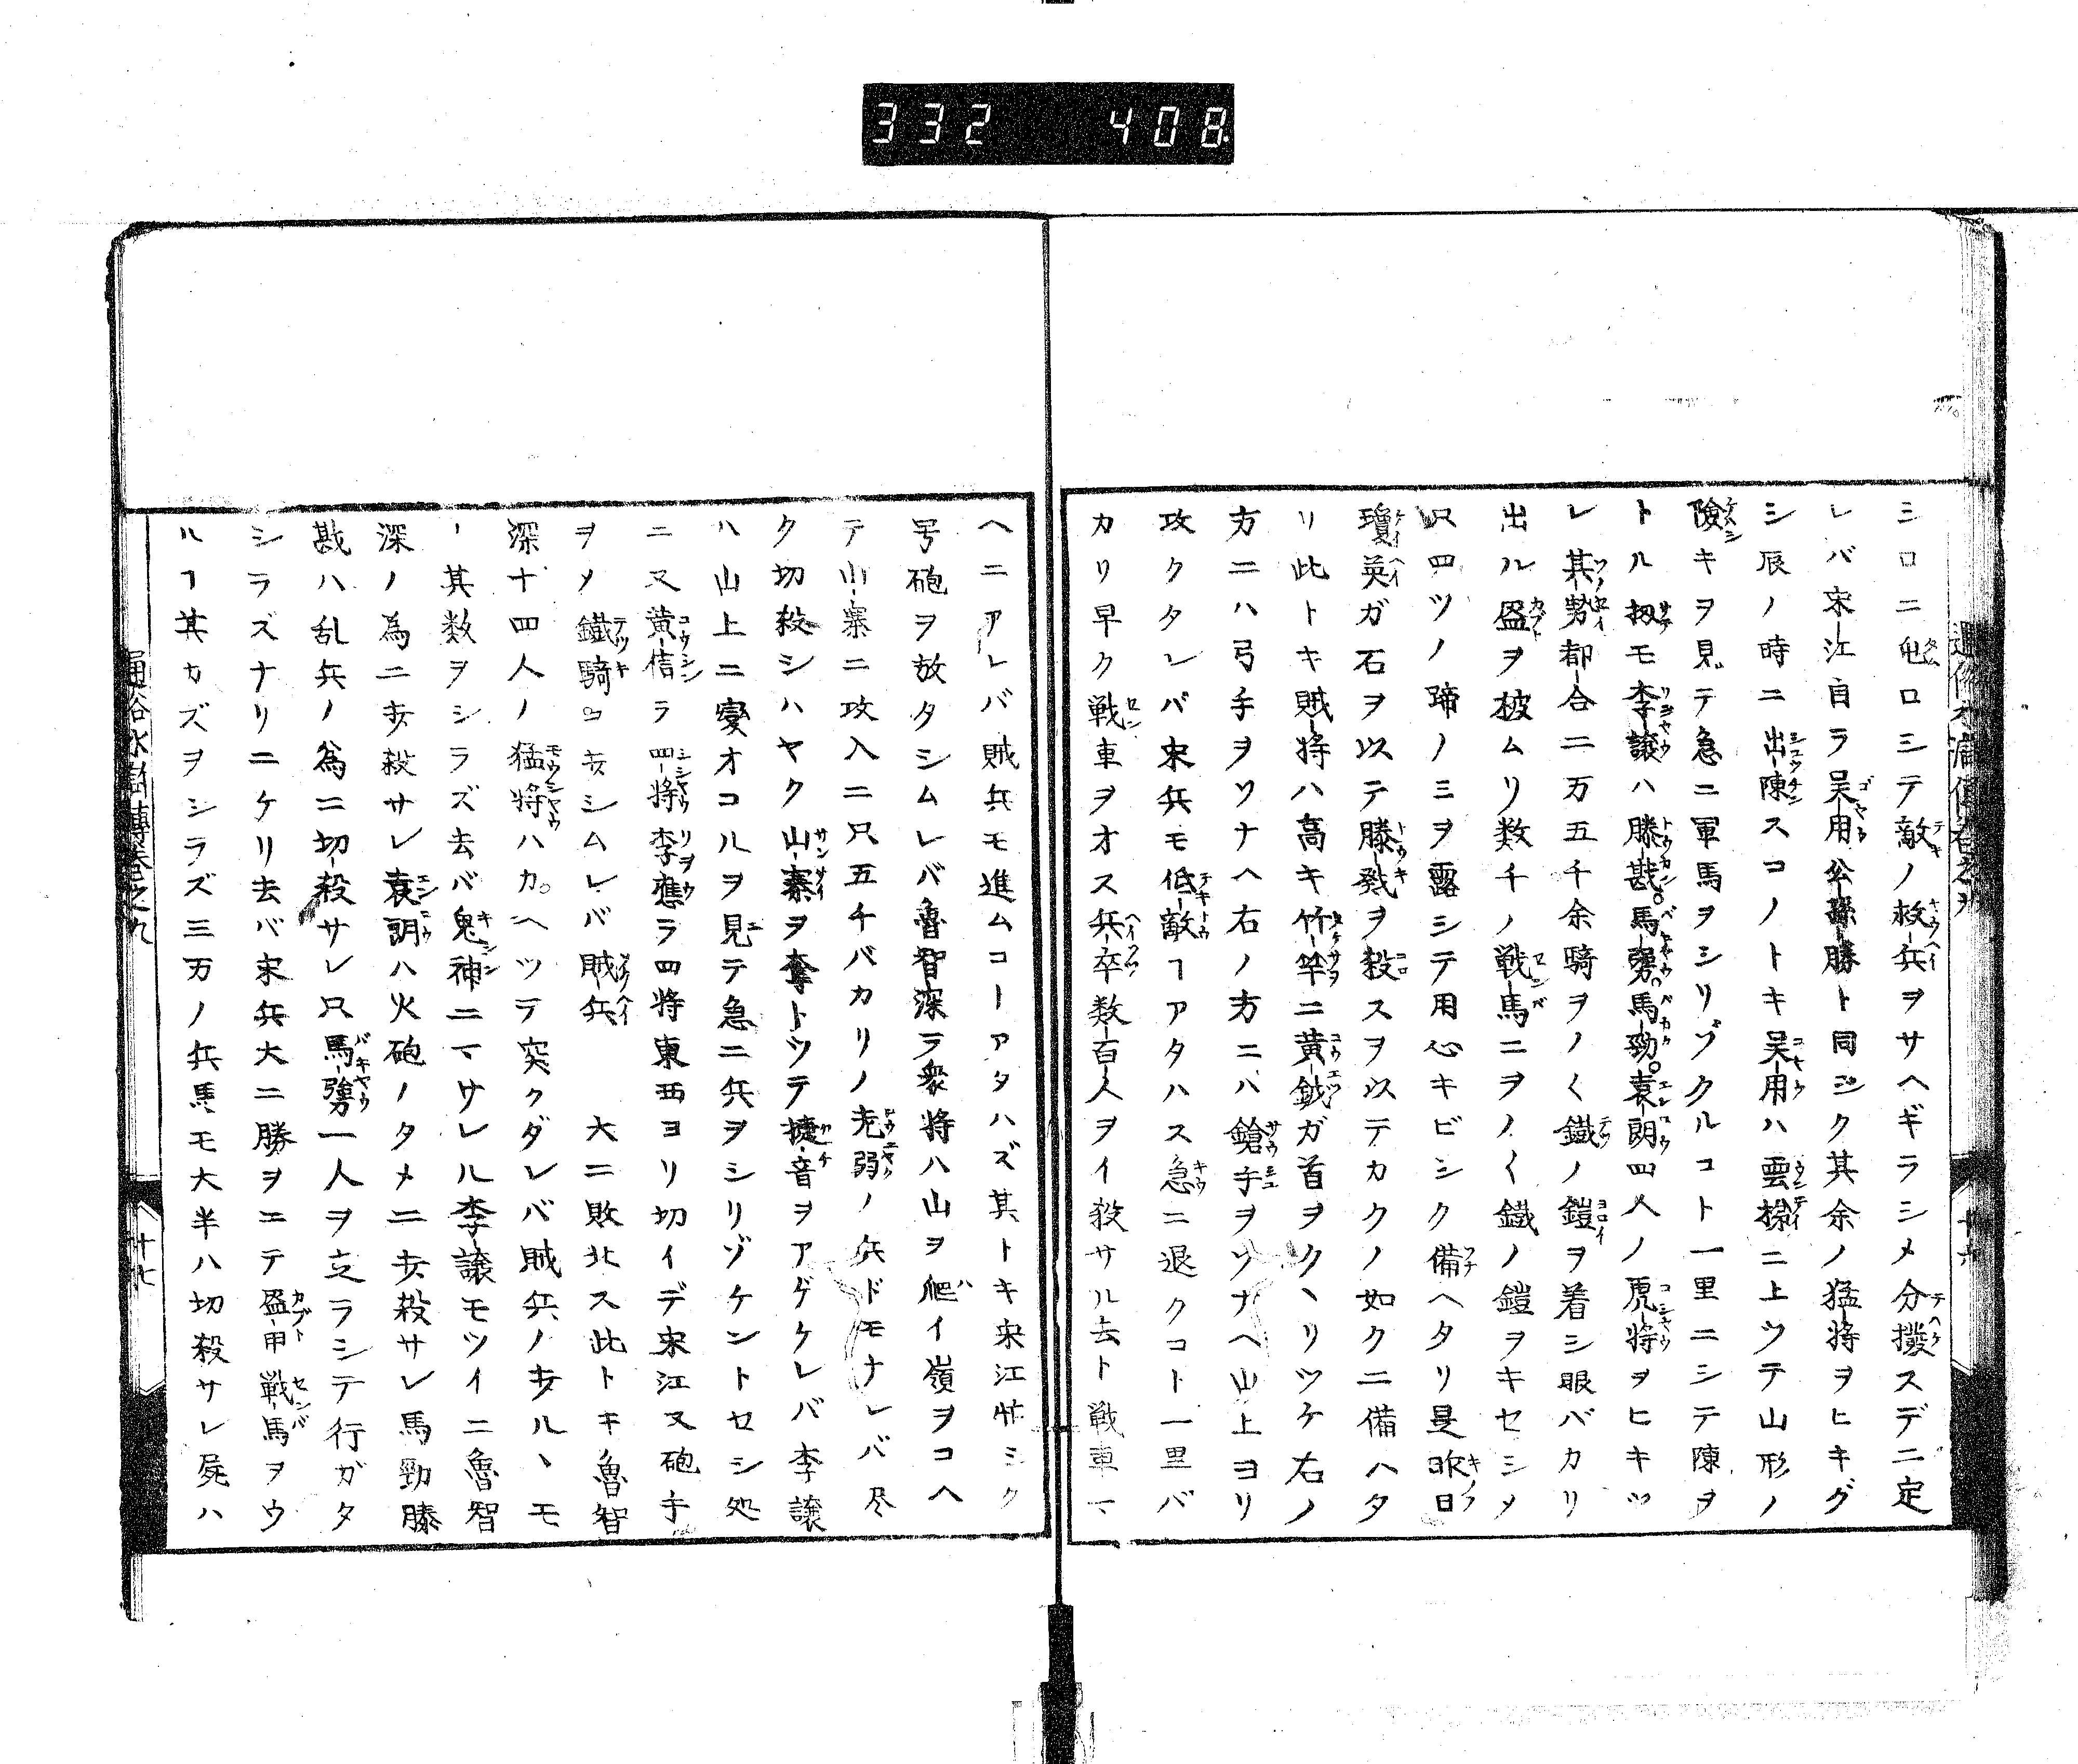 332 408
シロニ屯ロシテ敵ノ救兵ヲサヘギラシメ分撥スデニ定
レバ宋江自ラ呉用公孫勝ト同シク其余ノ猛将ヲヒキグ
シ辰ノ時ニ出陳スコノトキ呉用ハ雲梯ニ上ツテ山形ノ
険キヲ見テ急ニ軍馬ヲシリゾクルコト一里ニシテ陳ヲ
トル扨モ李譲ハ滕戡。馬彊。馬勁。袁朗四人ノ虎将ヲヒキツ
レ其勢都合二万五千余騎ヲノく鐵ノ鎧ヲ着シ眼バカリ
出ル盔ヲ被ムリ数千ノ戦馬ニヲノく鐡ノ鎧ヲキセシメ
只四ツノ蹄ノミヲ露シテ用心キビシク備ヘタリ是昨日
瓊英ガ石ヲ以テ滕戣ヲ殺スヲ以テカクノ如クニ備ハタ
リ此トキ賊将ハ高キ竹竿ニ黄鉞ガ首ヲクヽリツケ右ノ
方ニハ弓手ヲソナヘ右ノ方ニハ鎗手ヲソナヘ山上ヨリ
攻クタレバ宋兵モ低敵ヿアタハス急ニ退クコト一里バ
カリ早ク戦車ヲオス兵卒数百人ヲイ殺サル去ト戦車マ
ヘニアレバ賊兵モ進ムコーアタハズ其トキ宋江忙ミク
号砲ヲ放タシムレバ魯智深ラ衆将ハ山ヲ爬イ嶺ヲコヘ
テ山寨ニ攻入ニ只五千バカリノ老弱ノ兵ドモナレバ尽
ク切殺シハヤク山寨ヲ奪トツテ捷音ヲアゲケレバ李譲
ハ山上ニ変オコルヲ見テ急ニ兵ヲシリゾケントセシ処
ニ又黄信ラ四将李應ラ四将東西ヨリ切イデ宋江又砲手
ヲメ鐵騎ヲ歩シムレバ賊兵 大ニ敗北ス此トキ魯智
深十四人ノ猛将ハカ。ヘツテ突クダレバ賊兵ノ歩ルヽモ
ノ其数ヲシラズ去バ鬼神ニマサレル李譲モツイニ魯智
深ノ為ニ歩殺サレ袁朗ハ火砲ノタメニ歩殺サレ馬勁滕
戡ハ乱兵ノ為ニ切殺サレ只馬彊一人ヲ立ラシテ行ガタ
シラズナリニケリ去バ宋兵大ニ勝ヲエテ盔甲戦馬ヲウ
ルヿ其カズヲシラズ三万ノ兵馬モ大半ハ切殺サレ屍ハ
通俗水滸傳巻之九
十七